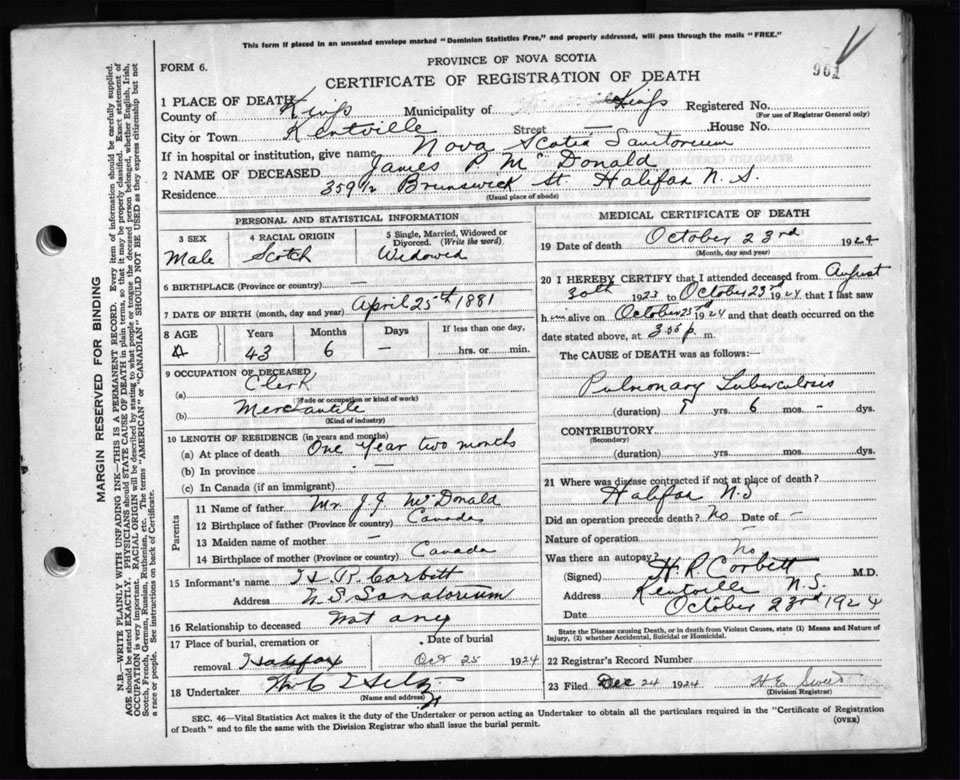 This form if placed in an unsealed envelope marked "Dominion Statistics Free," and properly addressed, will pass through the mails "FREE."
961
FORM 6.
PROVINCE OF NOVA SCOTIA
CERTIFICATE OF REGISTRATION OF DEATH
1 PLACE OF DEATH
County of Kings Municipality of Kings Registered No.
(For use of Registrar General only)
City or Town Kentville Street — House No.
If in hospital or institution, give name Nova Scotia Sanitorium
2 NAME OF DECEASED James P McDonald
Residence 359 1/2 Brunswick St Halifax N. S.
(Usual place of abode)
PERSONAL AND STATISTICAL INFORMATION
3 SEX 4 RACIAL ORIGIN 5 Single, Married, Widowed or Divorced. (Write the word)
Male Scotch Widowed
6 BIRTHPLACE (Province or country) —
7 DATE OF BIRTH (month, day and year) April 25th 1881
8 AGE Years Months Days If less than one day,
43 6 — hrs. or min.
9 OCCUPATION OF DECEASED
(a) Clerk
(Trade or occupation or kind of work)
(b) Mercantile
(Kind of industry)
10 LENGTH OF RESIDENCE (in years and months)
(a) At place of death One year two months
(b) In province —
(c) In Canada (if an immigrant)
Parents
11 Name of father Mr. J. J. McDonald
12 Birthplace of father (Province or country) Canada
13 Maiden name of mother —
14 Birthplace of mother (Province or country) Canada
15 Informant's name H R Corbett
Address N. S. Sanatorium
16 Relationship to deceased Not any
17 Place of burial, cremation or removal Halifax
Date of burial Oct 25 1924
18 Undertaker
(Name and address)
MEDICAL CERTIFICATE OF DEATH
19 Date of death October 23rd 1924
(Month, day and year)
20 I HEREBY CERTIFY that I attended deceased from August
30th 1923 to October 23rd 1924 that I last saw
him alive on October 23rd 1924 and that death occurred on the
date stated above, at 3.06 p. m.
The CAUSE of DEATH was as follows:
Pulmonary Tuberculosis
(duration) yrs. 6 mos. – dys.
CONTRIBUTORY
(Secondary)
(duration) yrs. mos. dys.
21 Where was disease contracted if not at place of death?
Halifax N.S
Did an operation precede death? No Date of –
Nature of operation –
Was there an autopsy? No
(Signed) H. R. Corbett M.D.
Address Kentville N.S.
Date October 23rd 1924
State the Disease causing Death, or in death from Violent Causes, state (1) Means and Nature of Injury, (2) whether Accidental, Suicidal or Homicidal.
22 Registrar's Record Number
23 Filed Dec 24 1924 H E
(Division Registrar)
SEC. 46—Vital Statistics Act makes it the duty of the Undertaker or person acting as Undertaker to obtain all the particulars required in the "Certificate of Registration
of Death" and to file the same with the Division Registrar who shall issue the burial permit.
(OVER)
MARGIN RESERVED FOR BINDING
N.B.—WRITE PLAINLY WITH UNFADING INK—THIS IS A PERMANENT RECORD. Every item of information should be carefully supplied.
AGE should be stated EXACTLY. PHYSICIANS should STATE CAUSE OF DEATH in plain terms, so that it may be properly classified. Exact statement of
OCCUPATION is very important. RACIAL ORIGIN will be described by stating to what people or tongue the deceased person belonged, whether English, Irish,
Scotch, French, German, Russian, Ruthenian, etc. The terms "AMERICAN" or "CANADIAN" SHOULD NOT BE USED as they express citizenship but not
a race or people. See instructions on back of Certificate.